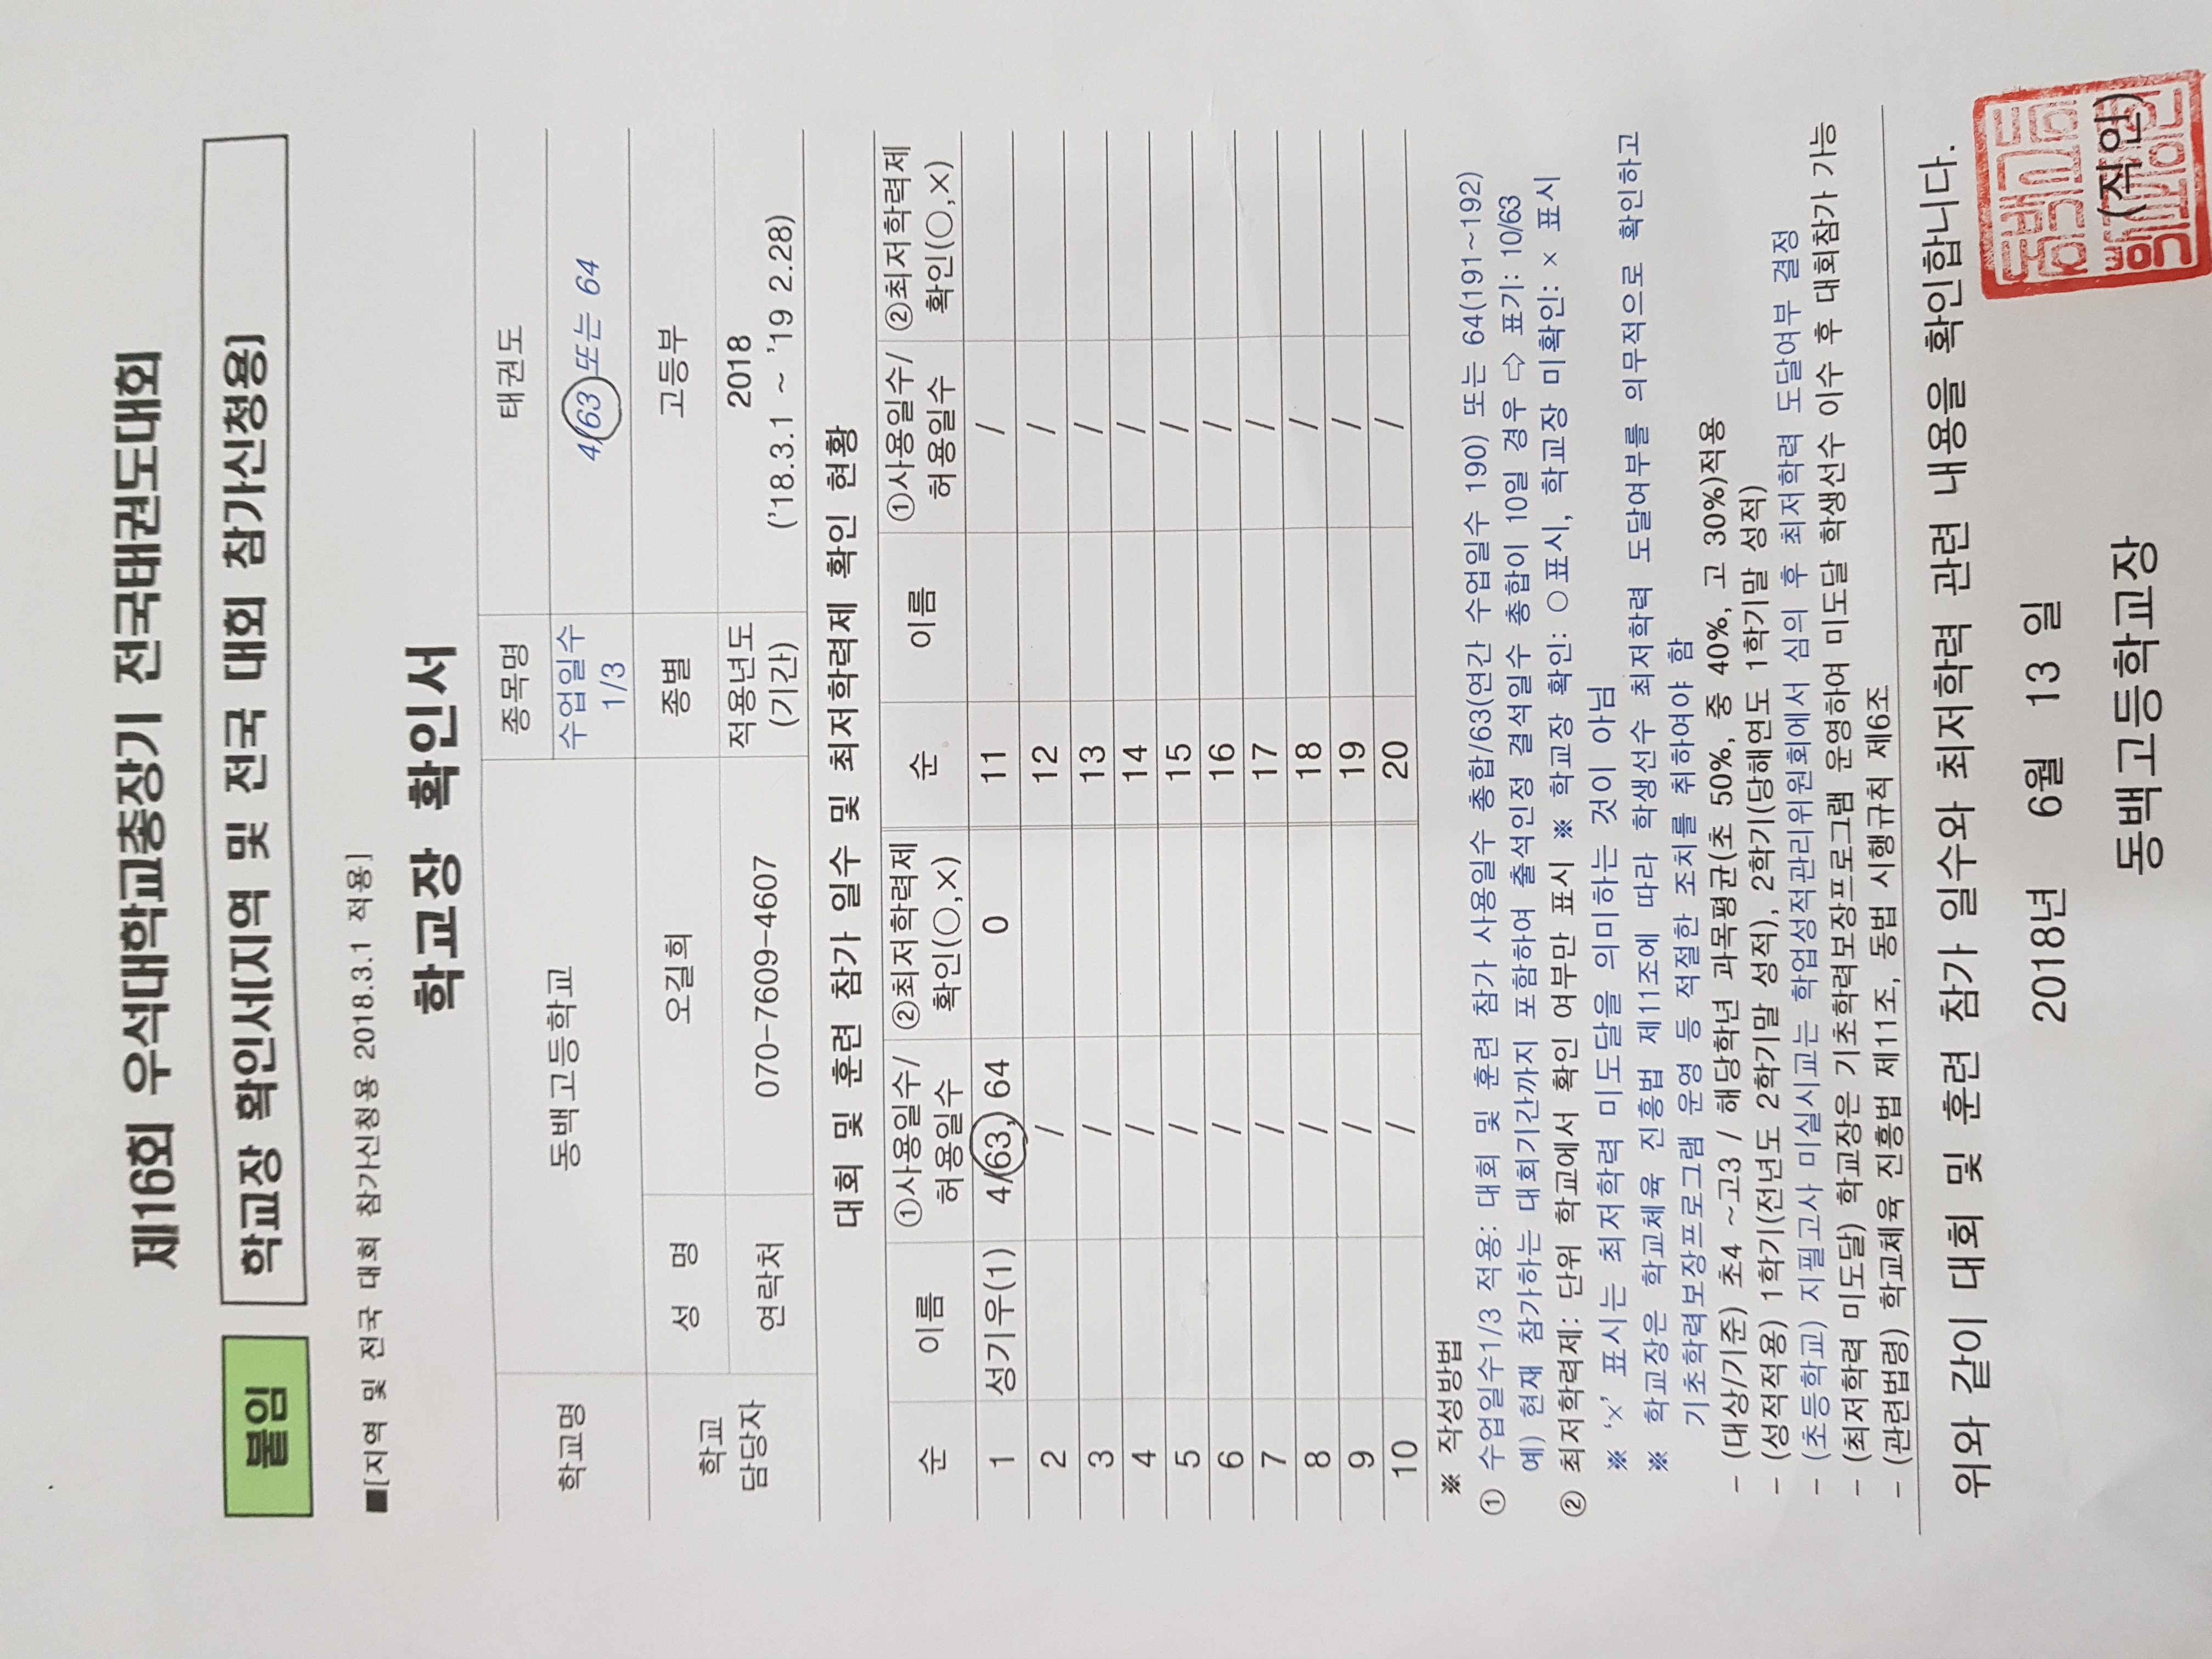 제16회 우석대학교총장기 전국태권도대회
붙임 학교장 확인서(지역 및 전국 대회 참가신청용)
■[지역 및 전국 대회 참가신청용 2018.3.1 적용]
학교장 확인서
학교명 동백고등학교 종목명 태권도
수업일수 1/3 4/63 또는 64
학교 담당자 성 명 오길희 종별 고등부
연락처 070-7609-4607 적용년도 (기간) 2018 ('18.3.1 ~ '19 2.28)
대회 및 훈련 참가 일수 및 최저학력제 확인 현황
순 이름 ①사용일수/허용일수 ②최저학력제 확인(○,×) 순 이름 ①사용일수/허용일수 ②최저학력제 확인(○,×)
1 성기우(1) 4/63, 64 0 11 /
2 / 12 /
3 / 13 /
4 / 14 /
5 / 15 /
6 / 16 /
7 / 17 /
8 / 18 /
9 / 19 /
10 / 20 /
※ 작성방법
① 수업일수1/3 적용: 대회 및 훈련 참가 사용일수 총합/63(연간 수업일수 190) 또는 64(191~192)
예) 현재 참가하는 대회기간까지 포함하여 출석인정 결석일수 총합이 10일 경우 ⇨ 표기: 10/63
② 최저학력제: 단위 학교에서 확인 여부만 표시 ※ 학교장 확인: ○표시, 학교장 미확인: × 표시
※ '×' 표시는 최저학력 미도달을 의미하는 것이 아님
※ 학교장은 학교체육 진흥법 제11조에 따라 학생선수 최저학력 도달여부를 의무적으로 확인하고
기초학력보장프로그램 운영 등 적절한 조치를 취하여야 함
- (대상/기준) 초4 ~고3 / 해당학년 과목평균(초 50%, 중 40%, 고 30%)적용
- (성적적용) 1학기(전년도 2학기말 성적), 2학기(당해연도 1학기말 성적)
- (초등학교) 지필고사 미실시교는 학업성적관리위원회에서 심의 후 최저학력 도달여부 결정
- (최저학력 미도달) 학교장은 기초학력보장프로그램 운영하여 미도달 학생선수 이수 후 대회참가 가능
- (관련법령) 학교체육 진흥법 제11조, 동법 시행규칙 제6조
위와 같이 대회 및 훈련 참가 일수와 최저학력 관련 내용을 확인합니다.
2018년 6월 13 일
동백고등학교장 (직인)